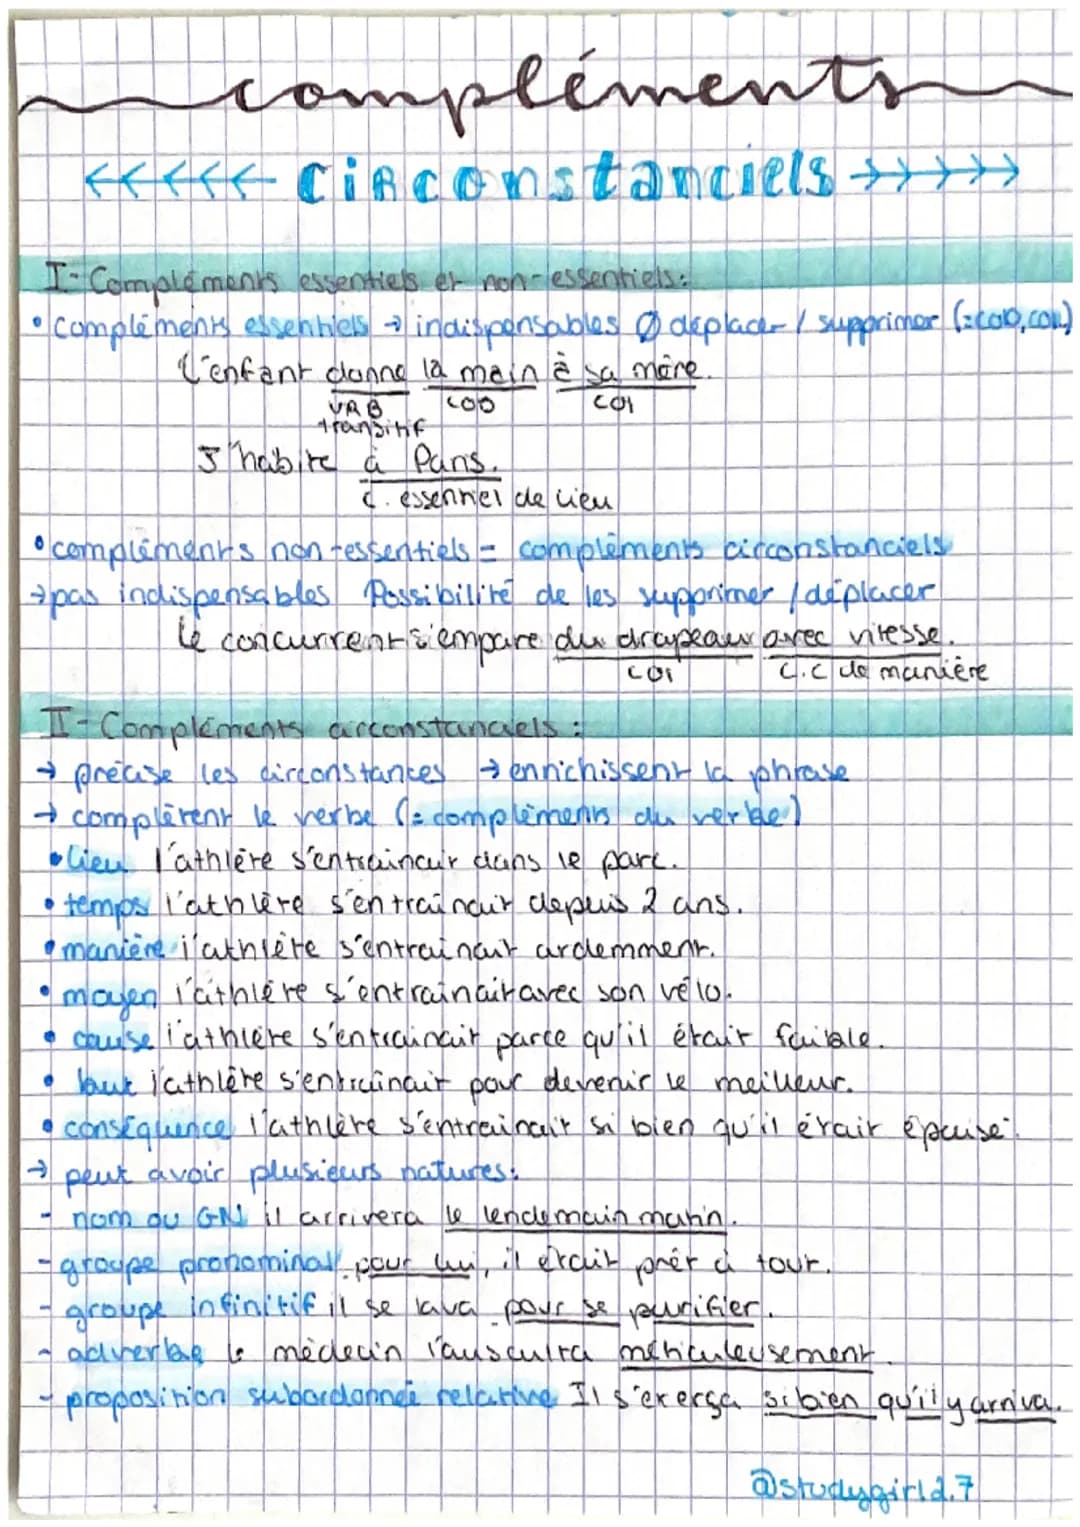 compléments
<<<<< circonstanciels >>>>>
I- Compléments essentiels et non-essentiels:
• compléments essentiels → indispensables Ø déplacer / supprimer (=COD, COI)
L'enfant donne la main à sa mère.
VRB COD COI
transitif
J'habite à Paris.
C. essentiel de lieu
• compléments non-essentiels = compléments circonstanciels
→ pas indispensables Possibilité de les supprimer / déplacer
Le concurrent s'empare du drapeau avec vitesse.
COI C.C de manière
II- Compléments circonstanciels :
→ précise les circonstances → enrichissent la phrase
→ complètent le verbe (= compléments du verbe)
• lieu l'athlète s'entrainait dans le parc.
• temps l'athlète s'entrainait depuis 2 ans.
• manière l'athlète s'entrainait ardemment.
• moyen l'athlète s'entrainait avec son vélo.
• cause l'athlète s'entrainait parce qu'il était faible.
• but l'athlète s'entrainait pour devenir le meilleur.
• conséquence l'athlète s'entrainait si bien qu'il était épuisé.
→ peut avoir plusieurs natures:
- nom ou GN il arrivera le lendemain matin.
- groupe pronominal pour lui, il était prêt à tout.
- groupe infinitif il se lava pour se purifier.
- adverbe le médecin l'ausculta méticuleusement.
- proposition subordonnée relative Il s'exerça si bien qu'il y arriva.
@studygirl2.7